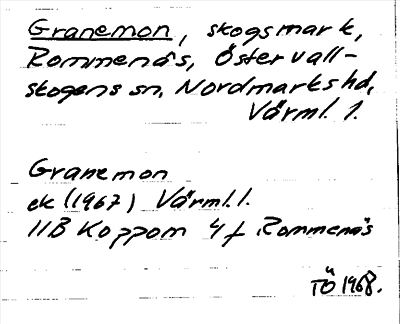 Granemon, skogsmark,
Rommenäs, Östervall-
skogens sn, Nordmarks hd,
Värml. l.
Granemon
ek (1967) Värml. l.
11B Koppom 4 f Rommenäs
TÖ 1968.